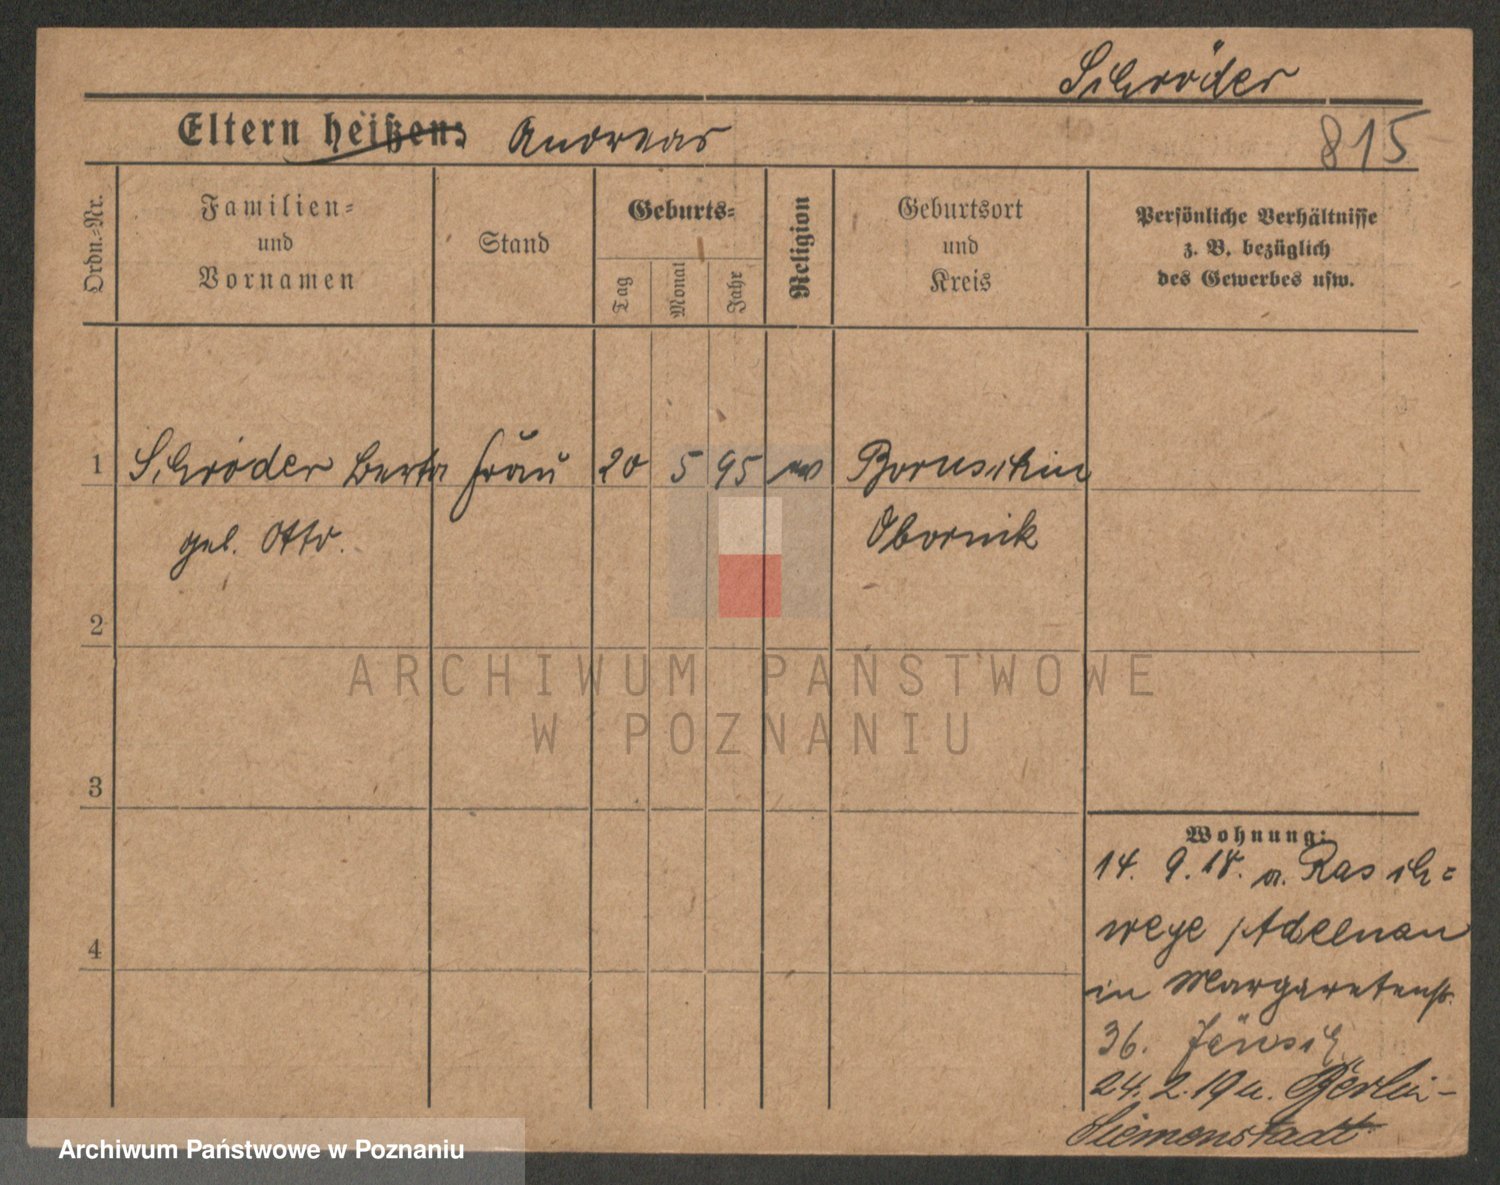 Schröder
Eltern heißen: Andreas
815
Ordn.-Nr.
Familien-
und
Vornamen
Stand
Geburts-
Tag
Monat
Jahr
Religion
Geburtsort
und
Kreis
Persönliche Verhältnisse
z. B. bezüglich
des Gewerbes usw.
1 Schröder Berta Frau 20 5 95 Boruschin
geb. Otto. Obornik
2
3
4
Wohnung:
14. 9. 18. a. Rasch=
wege /Adelnau
in Margaretenstr.
36.
24. 2. 19 u. Berlin-
Siemensstadt
ARCHIWUM PAŃSTWOWE
W POZNANIU
Archiwum Państwowe w Poznaniu